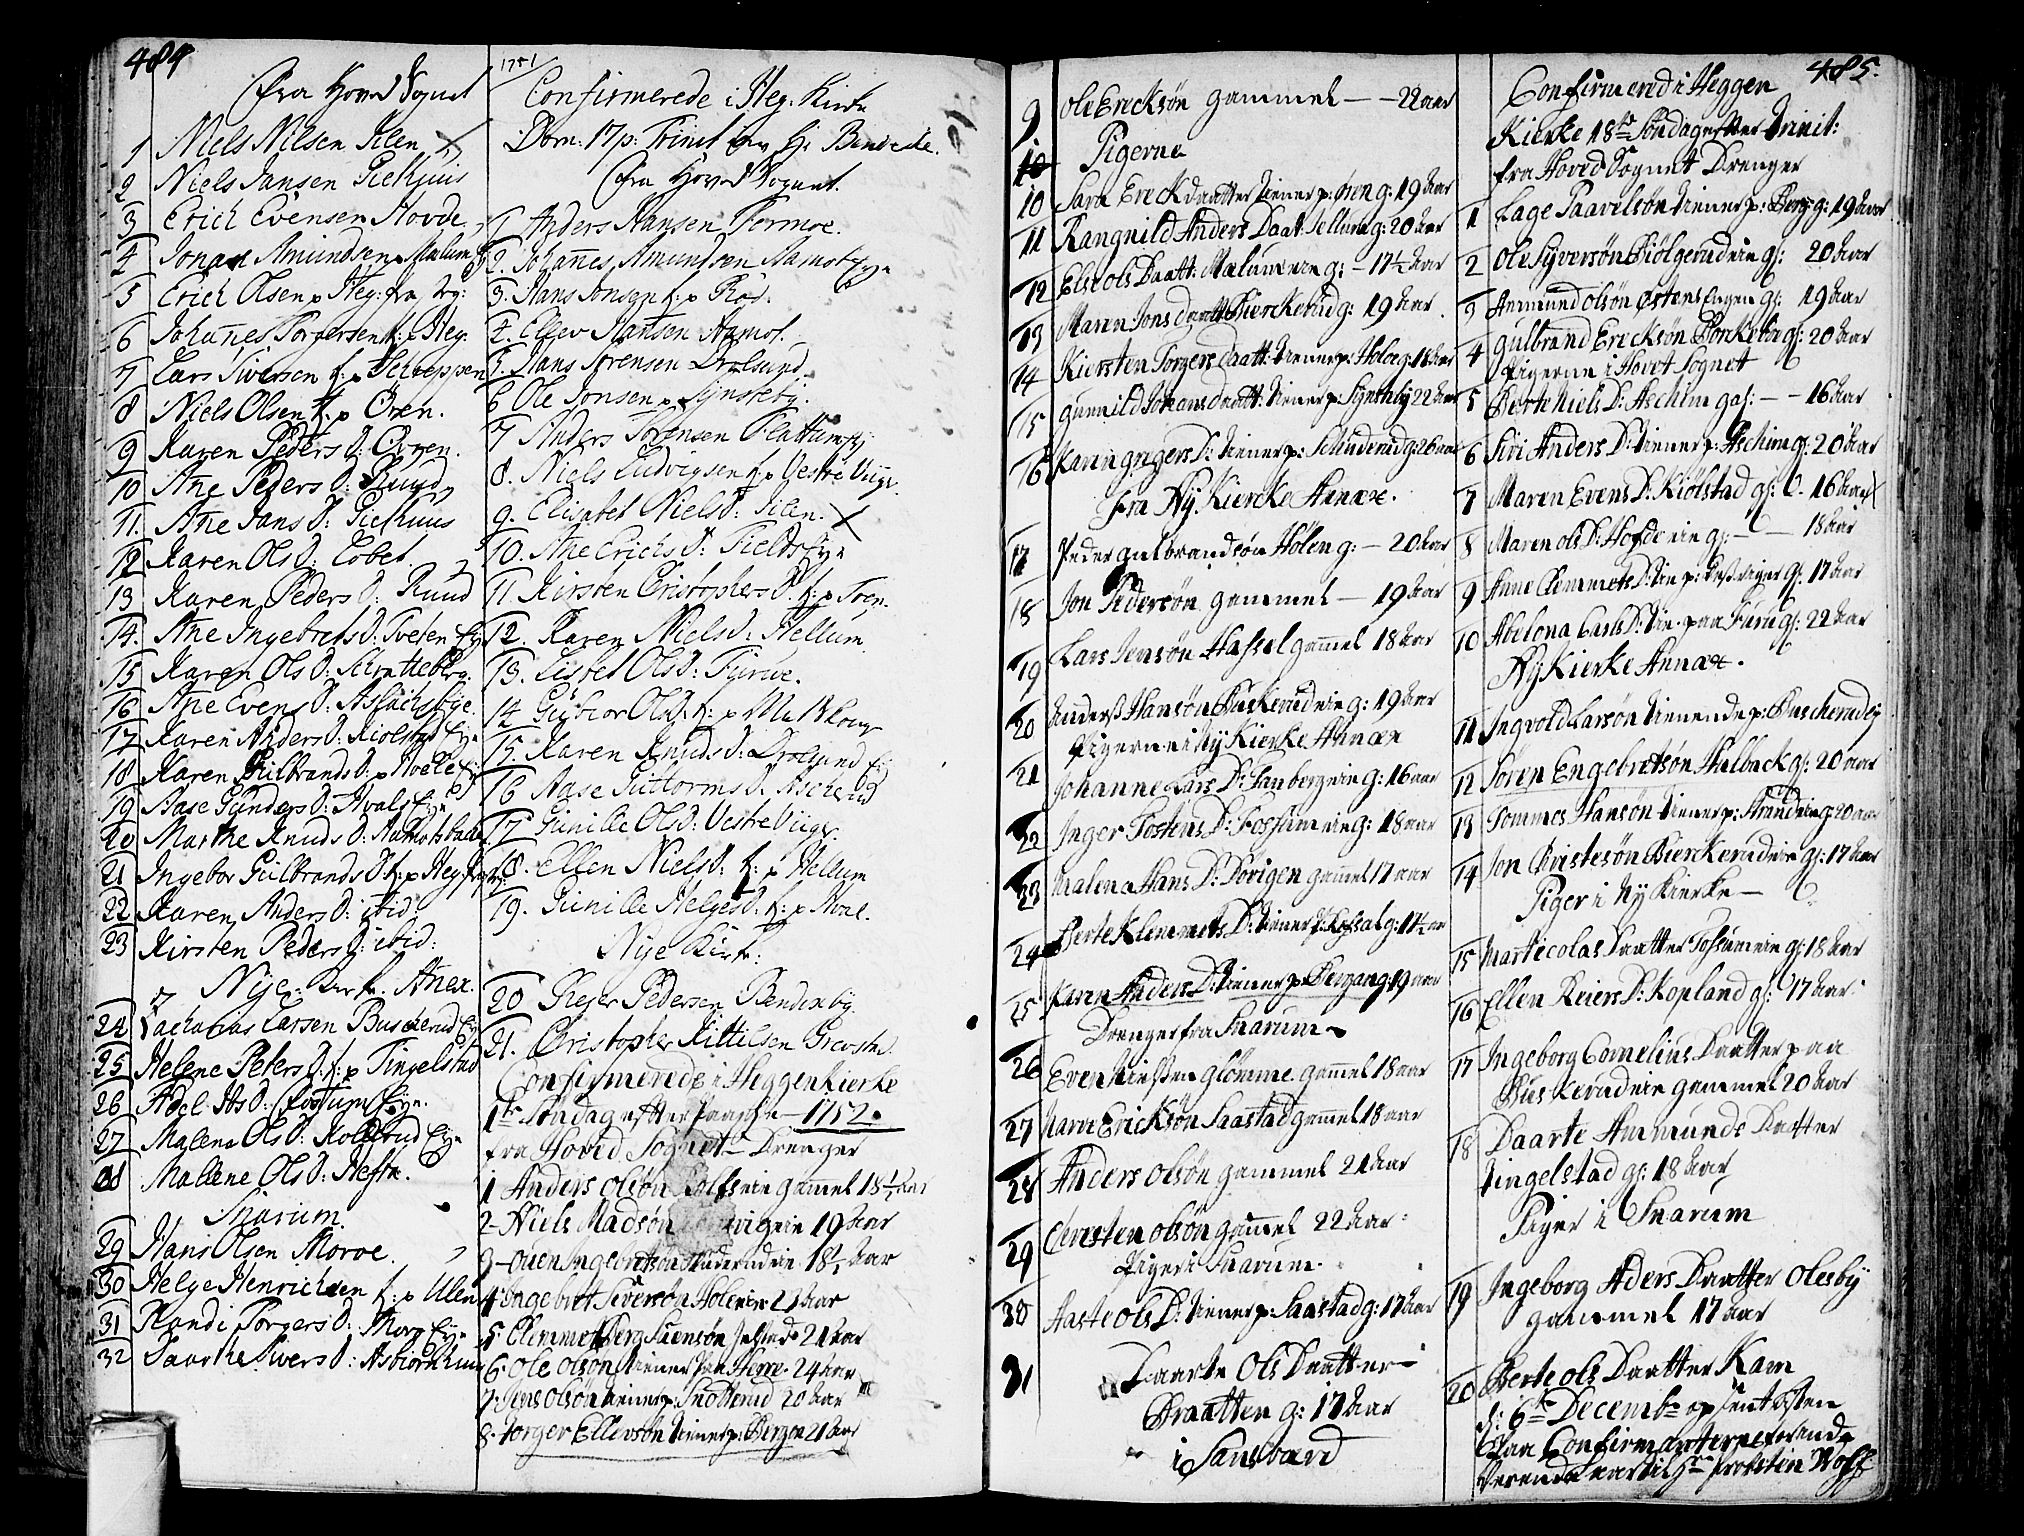 484
fra Hoved Sognet
1 Niels Nilsen Ilen X
2 Niels Jansen Piekhuus
3 Erich Evensen Hovde
4 Jonas Amundsen Mælum
5 Erich Olsen p Heg: fra Mg:
6 Johanes Torgersen t: p Heg.
7 Lars Siversen t. p Scheppen
8 Niels Olsen t. p Ören.
9 Karen Peders D: Ovren.
10 Ane Peders D: Ruud
11. Ane Jans D: Piekhuus
12 Karen Ols D: Lobet.
13 Karen Peders D: Ruud
14. Ane Ingebrets D: Tveten Eye
15 Karen Ols D: Skratteberg.
16 Ane Evens D: Aslachsbye.
17 Karen Anders D: Kiolstad Eye
18 Karen Gulbrands D: p Hoele
19 Aase Gunders D: Hvals Eye
20 Marthe Knuds D: Aamots
21 Ingebor Gulbrands D t: p Heg
22 Karen Anders D: ibid
23 Kirsten Peders D: ibid:
Nye-Kirk. Anex.
24 Zacharias Larsen Buscherud
25 Helene Peters D: t: p Tingelstad
26 Adel As D: Fossum Eye.
27 Malene Ols D: Kollerud Eye
28 Mallene Ols D: Hesta.
Snarum.
29 Hans Olsen Moroe
30 Helge Henrichsen t: p Ulen
31 Randi Torgers D: Morg Eye
32 Taarke Sivers D: Asbiornhuus
1751
Confirmerede i Heg. Kirke
Dom: 17 p: Trinit av Hr Bendeke.
fra Hoved Sognet.
1 Anders Hansen Formoe.
2. Johanes Amundsen Aamots Eye
3. Hans Jonsen t. p Rød.
4. Ellev Hansen Aamot.
5. Hans Sorensen Drolsund.
6 Ole Jonsen p Synsteby.
7 Anders Torensen Flattum
8. Niels Ludvigsen t. p Vestre Viiger
9. Elisabet Niels D: Ilen. X
10. Ane Erichs D: Fields Eye
11 Kirsten Cristophers D. t. p Fren.
12. Karen Niels D: Hellum
13. Lisbet Ols D: Furue.
14 Gubior Ols D. t: p
15. Karen Knuds D: Drolsund
16 Aase Guttorms D. Ascherud
17 Gunille Ols D: Vestre Viiger
18. Ellen Niels D: t: p Hellum
19. Gunille Helges D: t: p Hval.
Nye Kirk:
20 Greger Pedersen Bendixby
21. Christopher Kittilsen Grevstu
Confirmerede i Heggen Kierke
1te Søndag efter Paaske 1752.
fra Hoved Sognet Drenger
1 Anders olsøn Rolfs eie gamel 18½ Aar
2- Niels Madsøn eie 19 Aar
3- ouen Ingebretsøn eie 18½ Aar
4 Ingebret Siversøn Hole eie 21 Aar
5. Clemmet 21 Aar
6. Ole olson tienner paa Herre. 24 aar
7. Jens olson tiener p: Snotterud 20 Aar
8. Torger Ellevsøn tiener p: Bergen 21 Aar
9 ole Ericksøn gammel - - 22 aar
Pigerne
10 Sara Erick daatter tiener p: øren g: 19 Aar
11 Rangnild Anders Daat: Jellum g: 20 Aar
12 Else ols Daatt: Mælum eie g: - 17½ Aar
13 Maren Jons daatt Bierkerud g: 19 Aar.
14 Kiersten Torgers daatt: tiener p: Hole g: 18 Aar
15 gunnild Johans daatt: tiener p: Synsteby 22 Aar
16 Karin gregers D: tiener p: Skinderud g: 26 aar
Fra Ny Kiercke Annæx.
17 Peder gulbrandsøn Hølen g: - 20 Aar
18 Jon Pedersøn gammel - 19 Aar
19 Lars Jensøn Hassel gamel 18 Aar
20 Anders Hansøn Buskerud eie g: 19 Aar
Pigerne i Ny Kierke Annæx
21 Johanne Lars D: Sanberg eie g: 16 aar
22 Inger Tostens D: Fossum eie g: 18 aar
23 Malena Hans D: Dorigen gamel 17 aar
24 Berte Klemmets D: tiener p: Kopsal g: 17½ ar
25 Karen Anders D: tiener p: Bergang: 19 aar
Drenger fra Snarum
26 Even Nielssen glomme gamel 18 aar
27 Narve Ericksøn Saastad gamel 18 aar
28 Anders olsøn gammel 21 Aar
29 Chresten olsøn gamel 22 Aar:
Piger i Snarum.
30 Aaste ols D: tiener p: Saastad g: 17 Aar
31 Daarte Ols Daatter i
Braatten g: 17 Aar
i Sansvard
485.
Confirmered i Heggen
Kierke 18de Søndag efter Trinit:
fra Hoved Sognet Drenger
1 Lage Paavelsøn tiener p: Berg g: 19 Aar
2 Ole Syversøn Biølgerud eie g: 20 Aar
3 Ammund olsøn østens Engen g: 19 Aar
4 gulbrand Ericksøn Bonkebak g: 20 Aar
Pigerne i Hovet Sognet
5 Berte Niels D: Aschim ga: - - 16 Aar
6 Siri Anders D: tiener p: Aschim g: 20 Aar
7 Maren Evens D: Kiølstad g: 16 Aar
8 Maren ols D: Hofde eie g: - - 18 Aar
9 Anne Clemmets D: tie p: Vestviger g: 17 Aar
10 Abelona Carls D: tie. paa Furu g: 22 Aar
Ny Kierke Annæx.
11 Ingvold Larsøn tienende p: Buscherud
12 Søren Engebretsøn Hulback g: 20 aar
13 Tommes Hansøn tiener p: Strand eie g 20 aar
14 Jon Christesøn Bierkerud eie g: 17 Aar
Piger i Ny Kierke -
15 Marte colas Daatter Fossum eie g: 18 Aar
16 Ellen Reiers D: Kopland g: 17 Aar
17 Ingeborg Cornelius Daatter paa
Buskerud eie gammel 20 Aar
18 Daarte Ammunds Datter
Tingelstad g: 18 Aar
Piger i Snarum
19 Ingeborg Aders Daatter Olesby
gammel 17 Aar
20 Berte ols Daatter Kam
d: 6te Decembr opsent Listen
Paa Confirmanterne